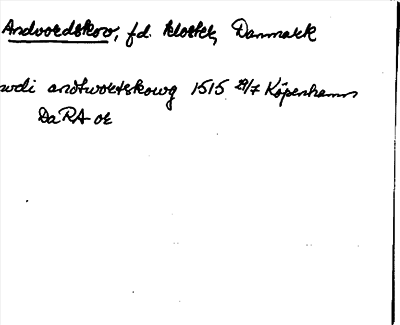 Andvordskov, fd. kloster, Danmark
wdi andtwortskowg 1515 29/7 Köpenhamn
DaRA or